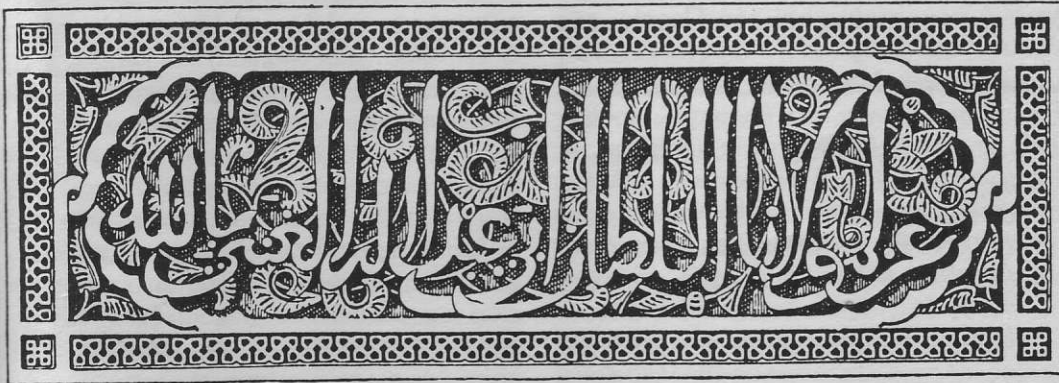 عز لمولانا السلطان ابي عبد الله الغني بالله